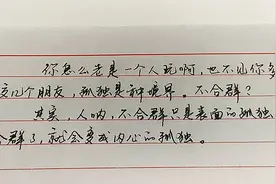 你怎么老是一个人玩啊，也不见你多
交几个朋友，孤独是种境界。不合群？
其实，人呐，不合群只是表面的孤独
合群了，就会变成内心的孤独。